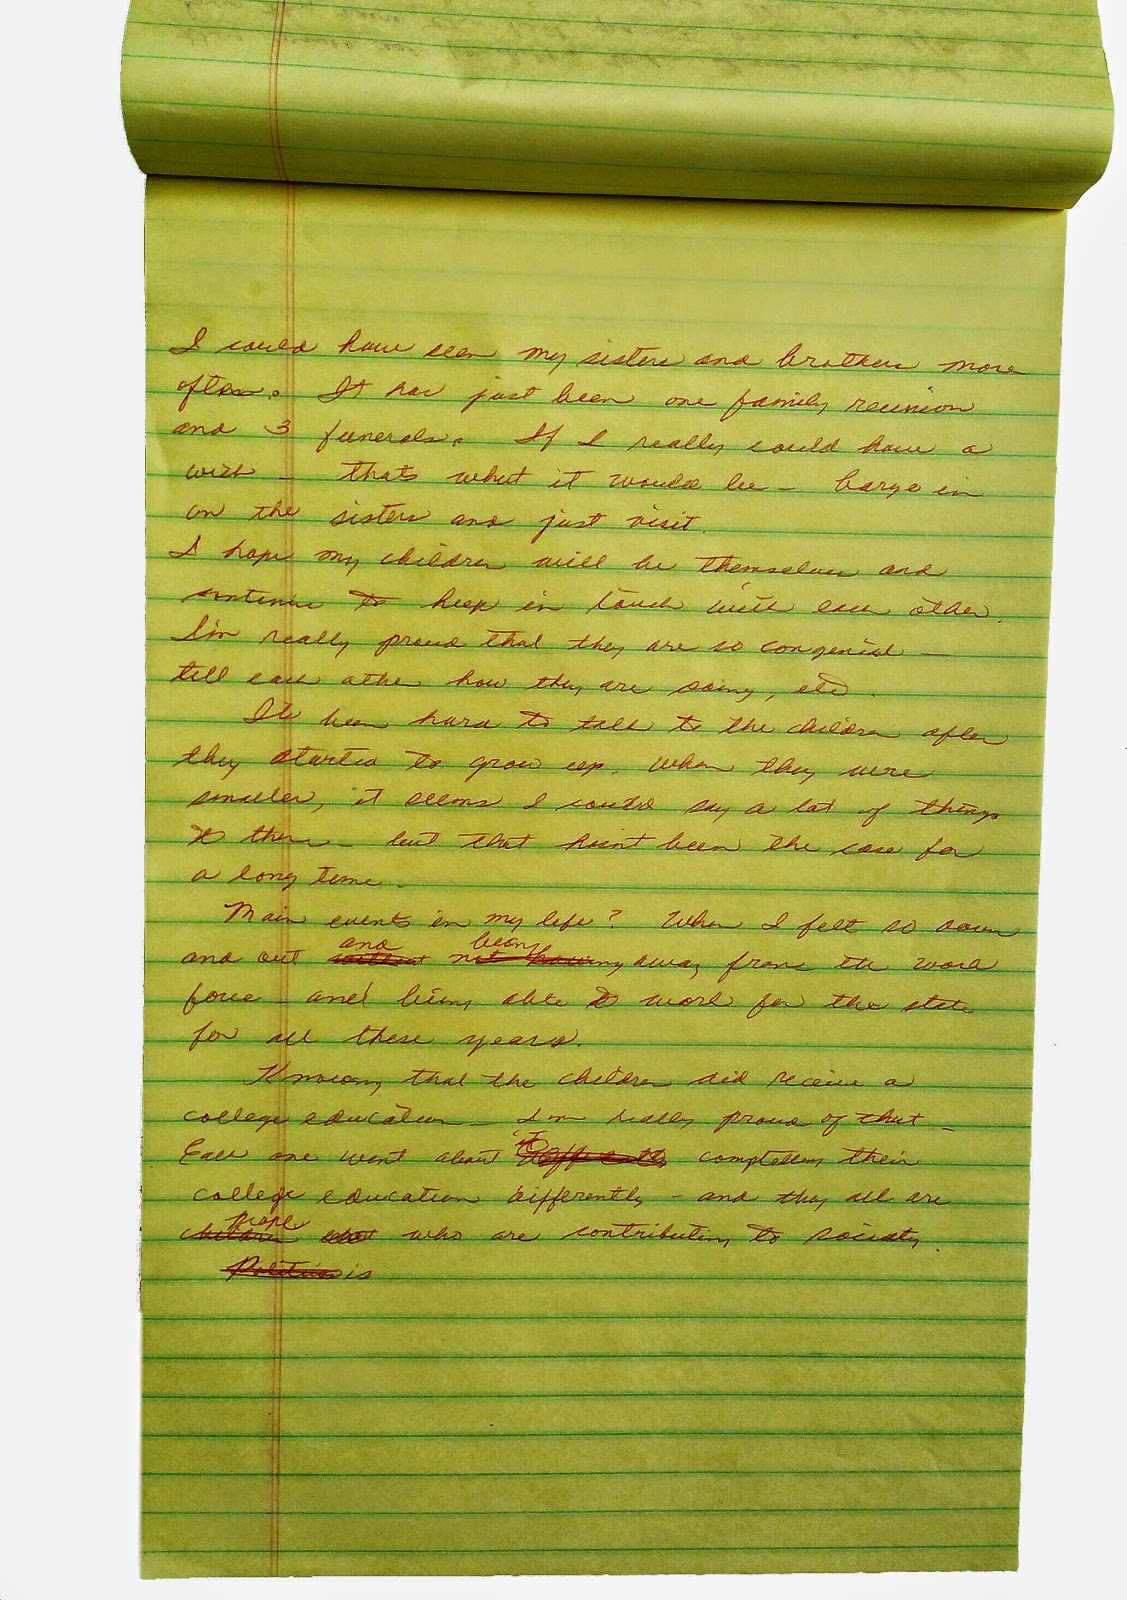 I could have seen my sisters and brothers more
often. It has just been one family reunion
and 3 funerals. If I really could have a
wish - thats what it would be - barge in
on the sisters and just visit.
I hope my children will be themselves and
continue to keep in touch with each other.
I'm really proud that they are so congenial -
tell each other how they are doing, etc.
Its been hard to talk to the children after
they started to grow up. When they were
smaller, it seems I could say a lot of things
to them - but that hasn't been the case for
a long time.
Main events in my life? When I felt so down
and been
and out without not having away from the work
force - and being able to work for the state
for all these years.
Knowing that the children did receive a
college education - I'm really proud of that -
it
Each one went about differently completing their
college education differently - and they all are
people
children who are contributing to society.
is